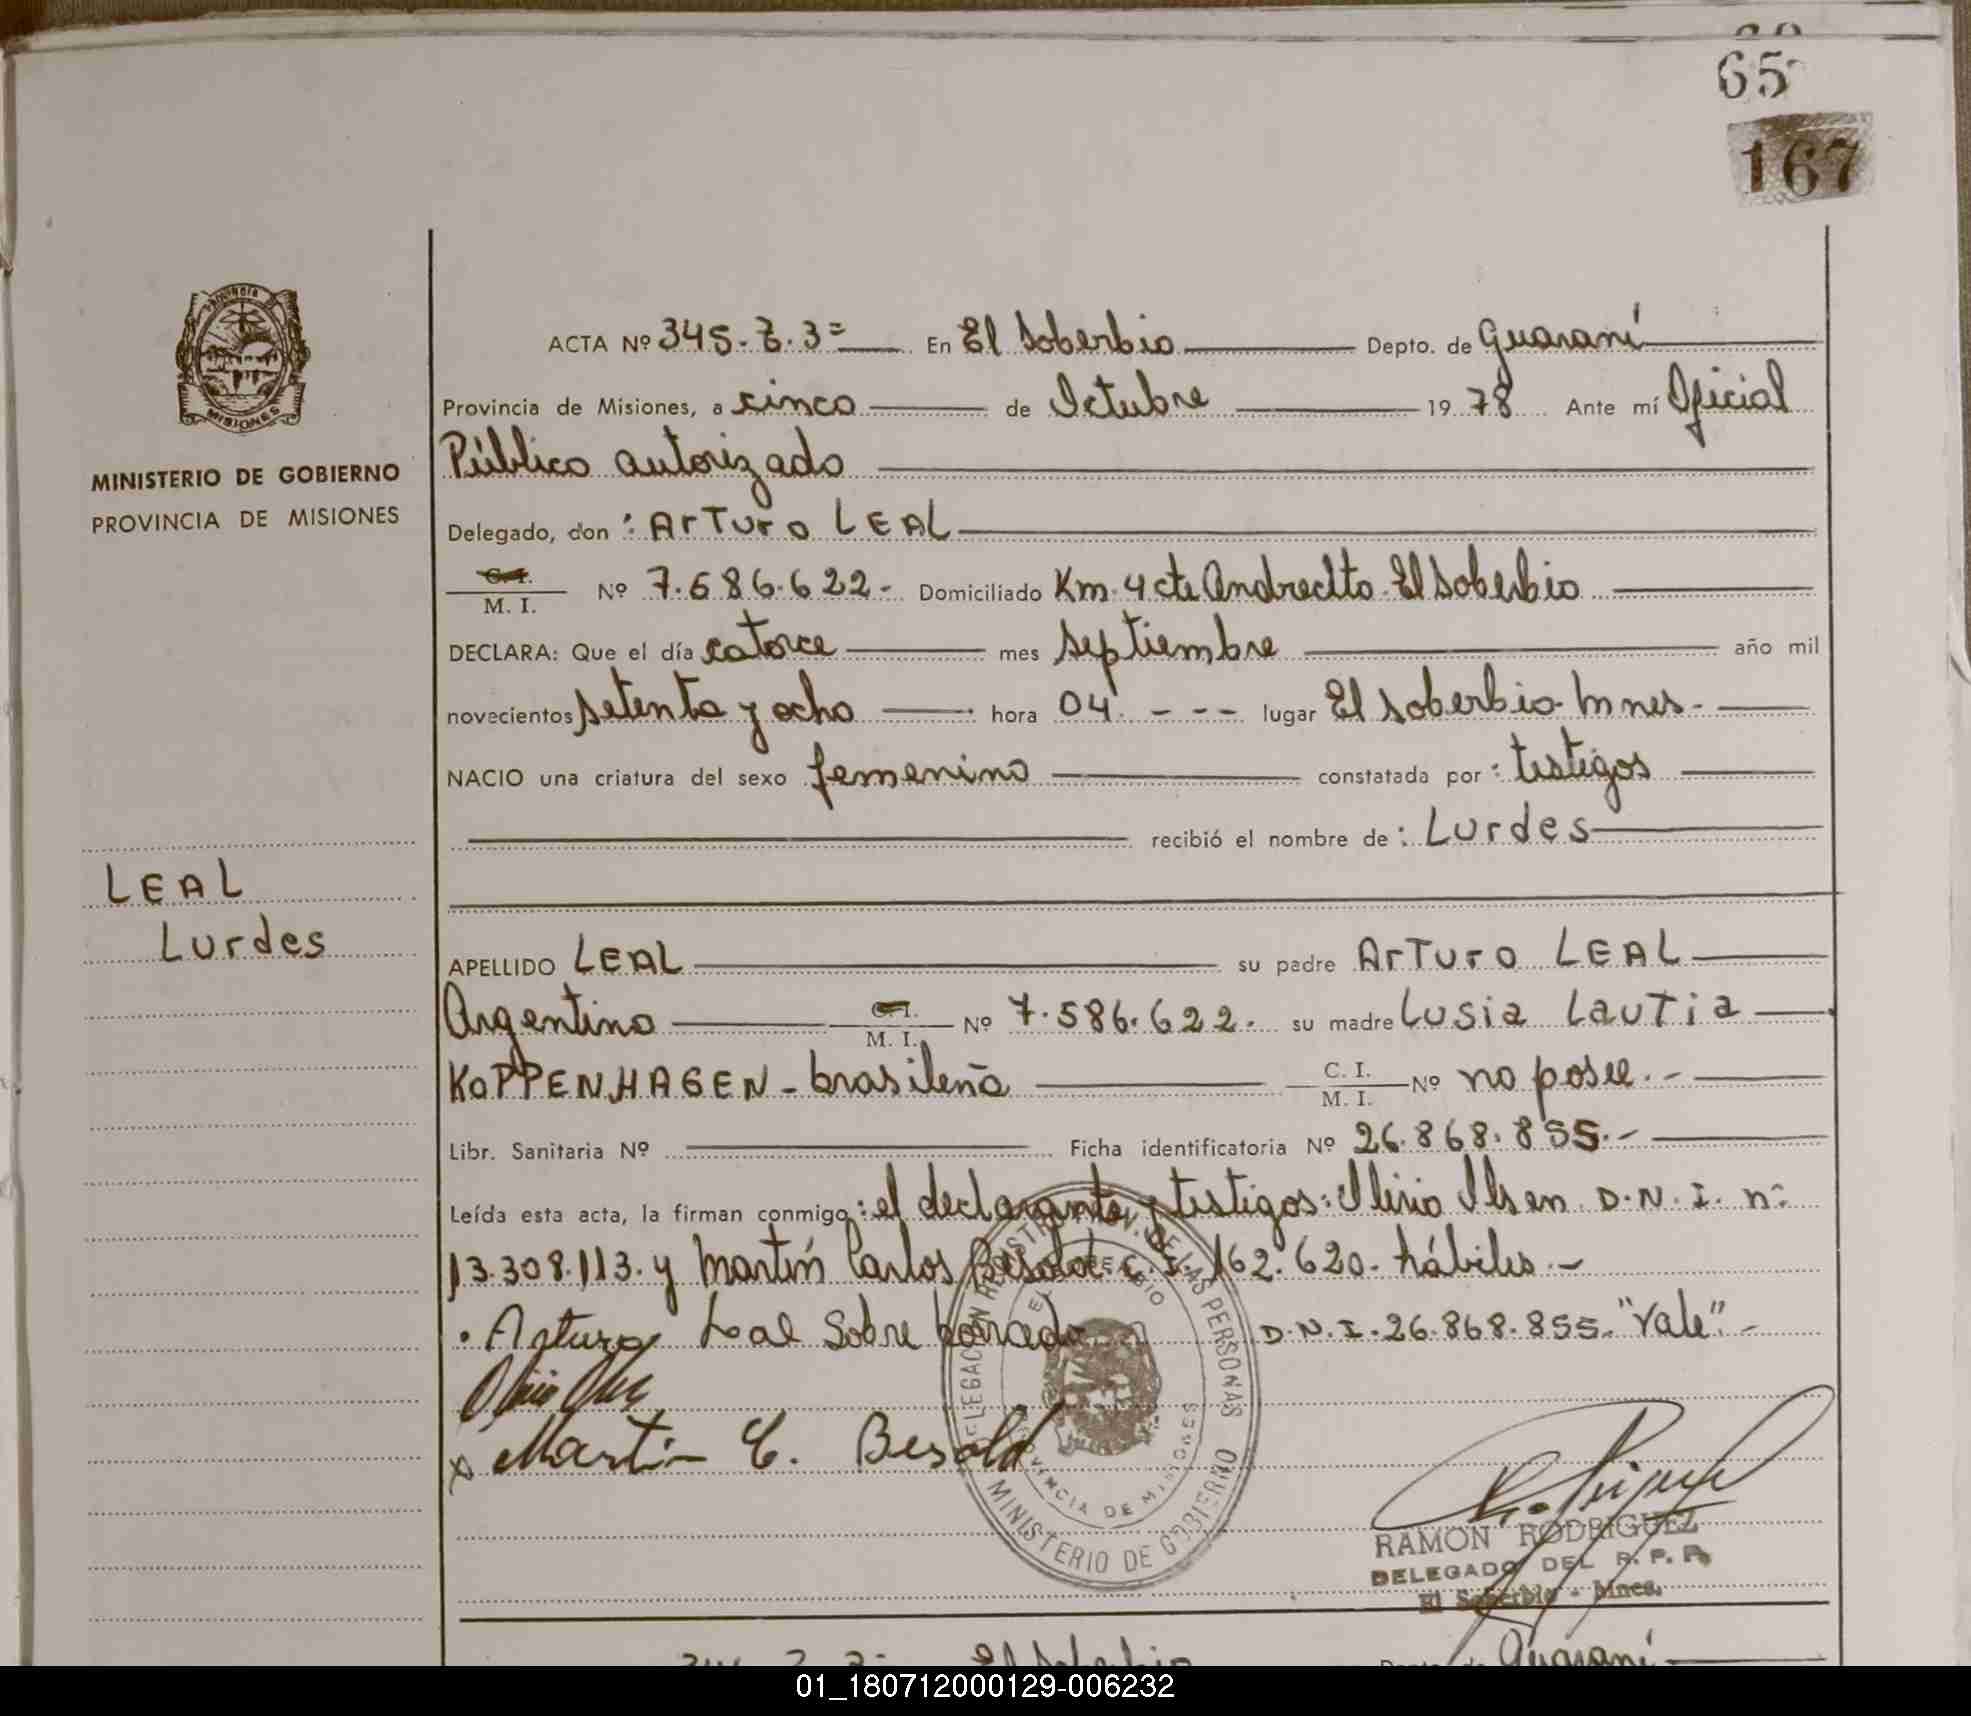 65
167
PROVINCIA
MISIONES
MINISTERIO DE GOBIERNO
PROVINCIA DE MISIONES
LEAL
Lurdes
ACTA Nº 345.T.3= En El Soberbio Depto. de Guaraní
Provincia de Misiones, a cinco de Octubre 19 78 Ante mí Oficial
Público autorizado
Delegado, don : ArTuro LEAL
C. I.
M. I. Nº 7.586.622.- Domiciliado Km. 4 cte Andrecito. El Soberbio
DECLARA: Que el día catorce mes septiembre año mil
novecientos setenta y ocho hora 04 - - - lugar El Soberbio. Mnes.-
NACIO una criatura del sexo femenino constatada por : testigos
recibió el nombre de : Lurdes
APELLIDO LEAL su padre ArTuro LEAL
Argentino C. I. M. I. Nº 7.586.622. su madre Lusia LauTia
KoPPENHAGEN - brasileña C. I. M. I. Nº no posee.-
Libr. Sanitaria Nº Ficha identificatoria Nº 26.868.855.-
Leída esta acta, la firman conmigo : el declarante y testigos: Olirio Olsen D.N.I. nº
13.308.113. y Martín Carlos Besold C. I. 162.620. hábiles.-
Arturo Leal Sobre borrado D.N.I. 26.868.855. "Vale".-
x Martin C. Besold
DELEGACION REGISTRO PROV. DE LAS PERSONAS
EL SOBERBIO
PROVINCIA DE MISIONES
MINISTERIO DE GOBIERNO
RAMON RODRIGUEZ
DELEGADO DEL R. P. P.
El Soberbio - Mnes.
El Soberbio Guaraní
01_180712000129-006232